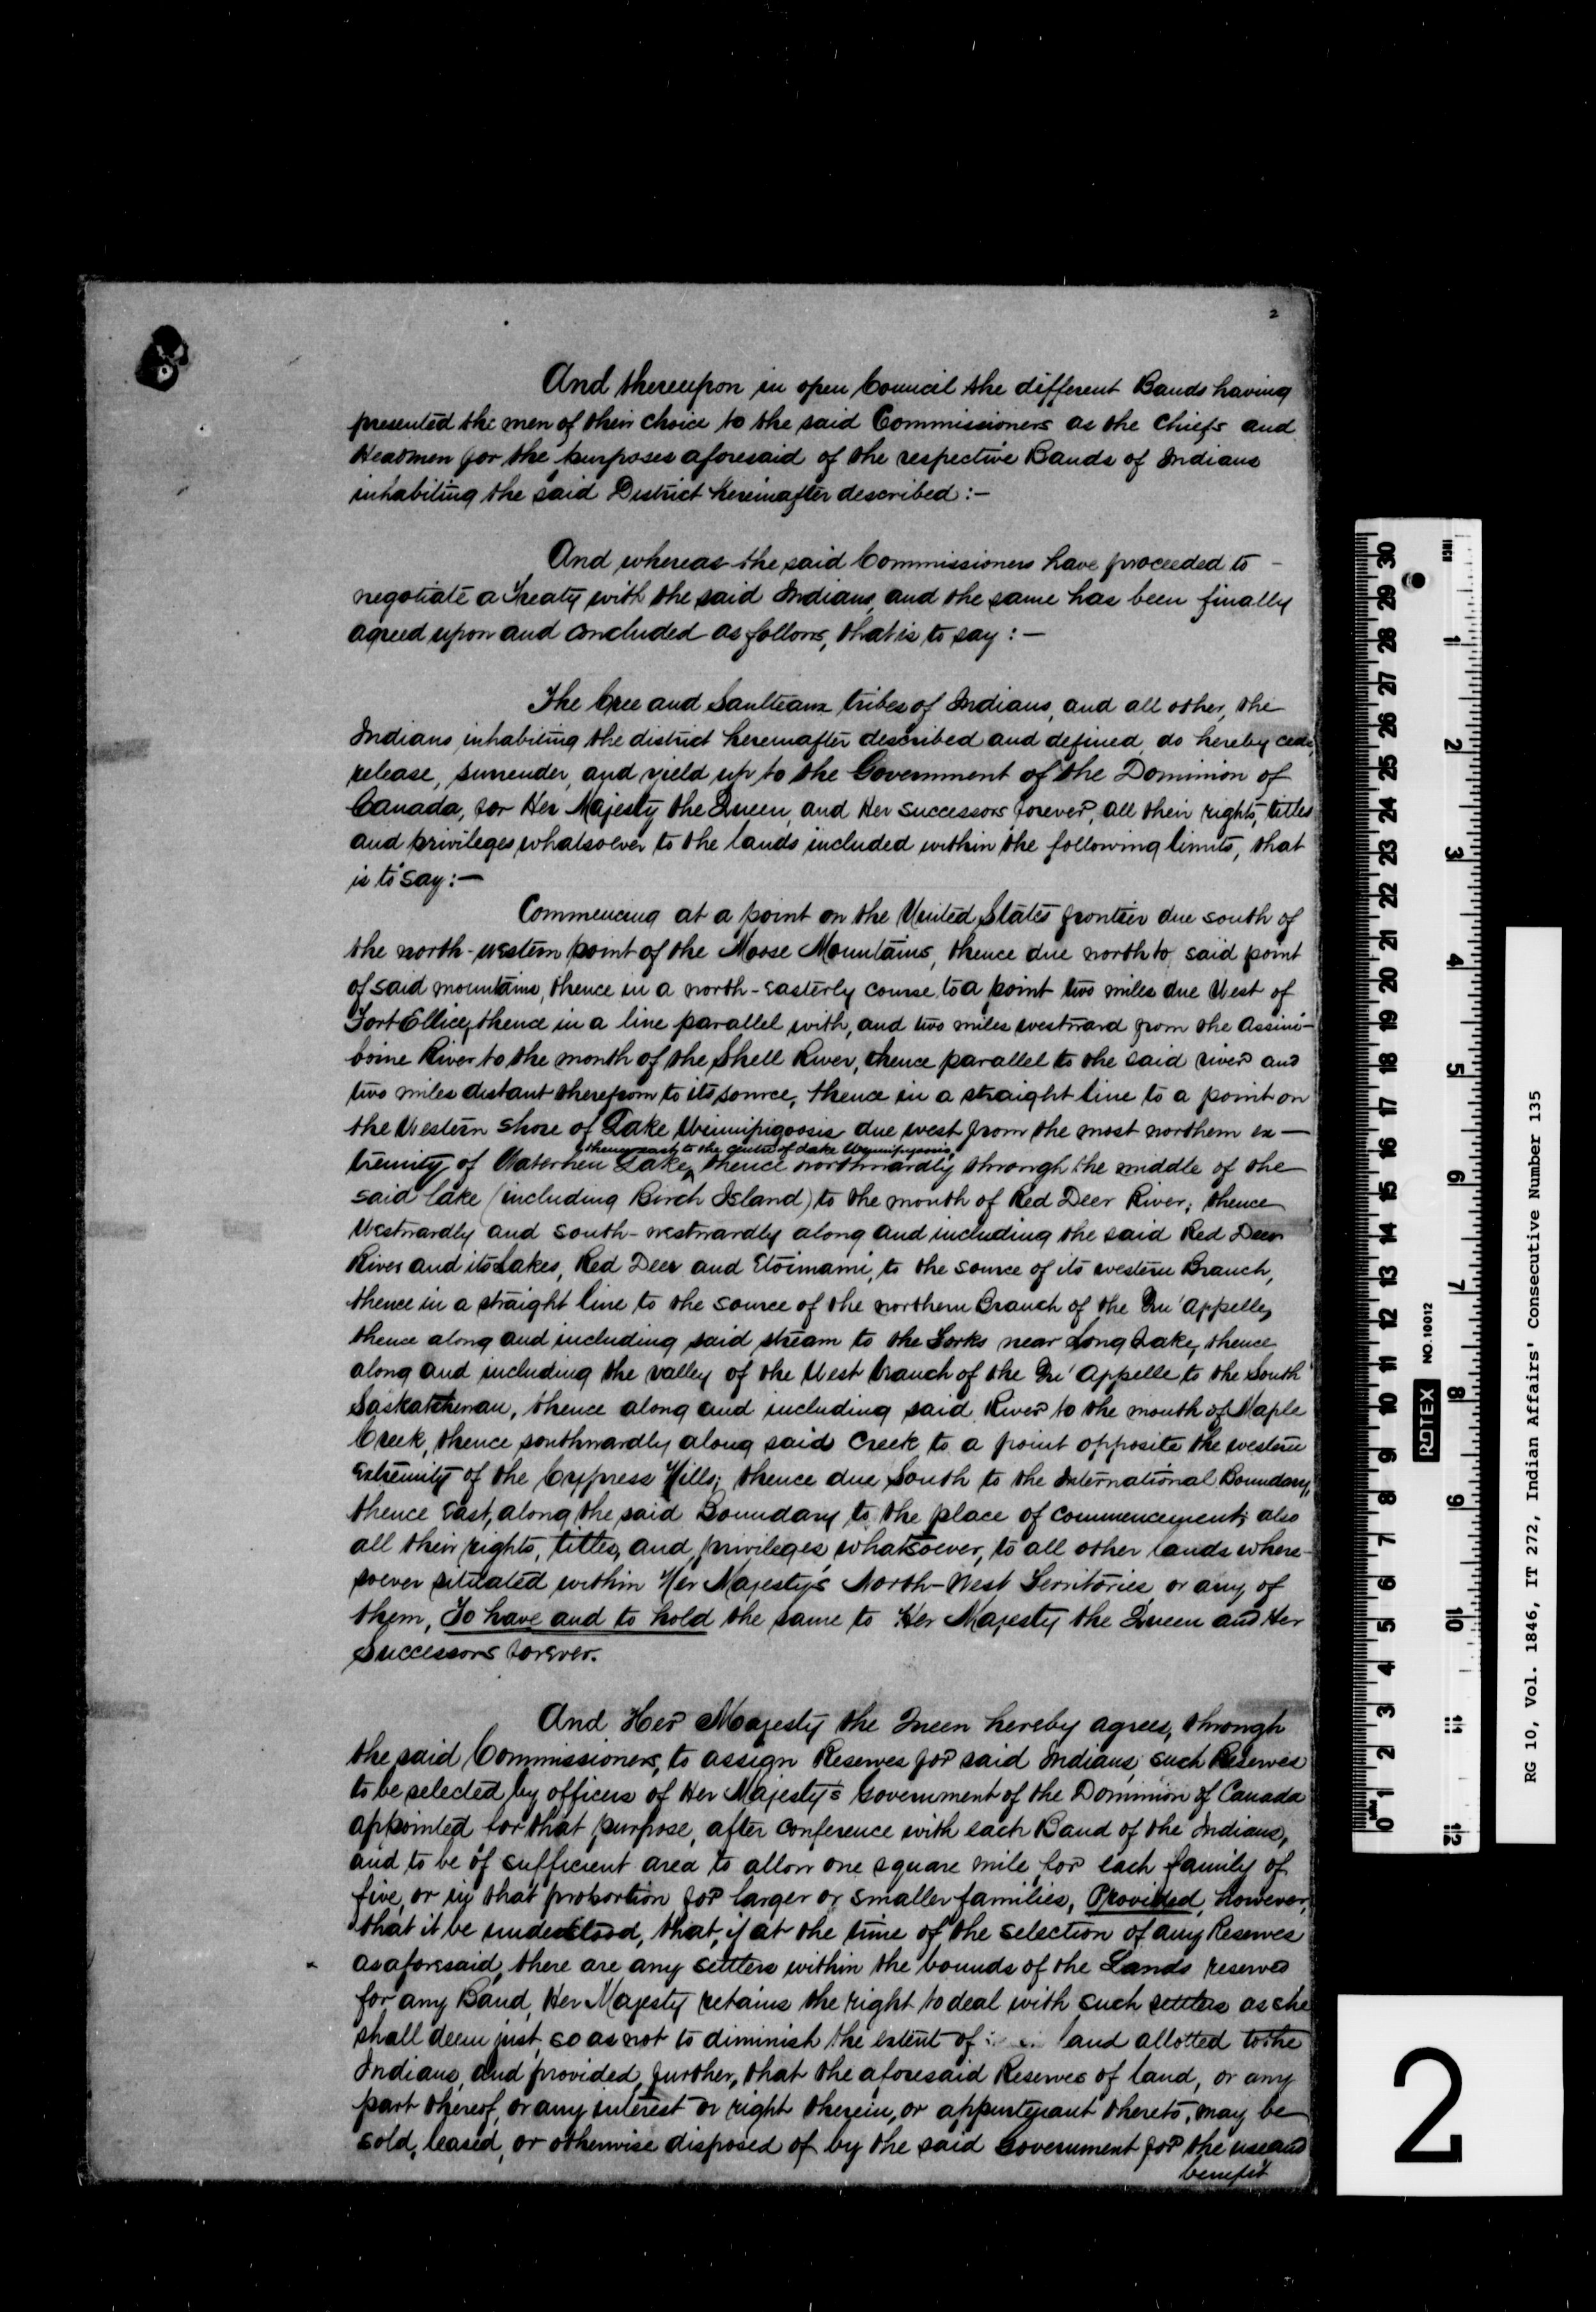 2
And thereupon in open Council the different Bands having
presented the men of their choice to the said Commissioners as the Chiefs and
Headmen for the purposes aforesaid of the respective Bands of Indians
inhabiting the said District hereinafter described:—
And whereas the said Commissioners have proceeded to -
negotiate a Treaty with the said Indians, and the same has been finally
agreed upon and concluded as follows, that is to say:—
The Cree and Saulteaux tribes of Indians, and all other, the
Indians inhabiting the district hereinafter described and defined, do hereby cede,
release, surrender, and yield up to the Government of the Dominion of
Canada, for Her Majesty the Queen, and Her successors forever, all their rights, titles
and privileges whatsoever to the lands included within the following limits, that
is to say:—
Commencing at a point on the United States frontier due south of
the north-western point of the Moose Mountains, thence due north to said point
of said mountains, thence in a north-easterly course to a point two miles due West of
Fort Ellice, thence in a line parallel with, and two miles westward from the Assini-
boine River to the mouth of the Shell River, thence parallel to the said river and
two miles distant therefrom to its source, thence in a straight line to a point on
the Western shore of Lake Winnipigoosis due west from the most northern ex—
thence east to the centre of Lake Winnipigoosis,
tremity of Waterhen Lake, thence northwardly through the middle of the
said lake (including Birch Island) to the mouth of Red Deer River; thence
Westwardly and south-westwardly along and including the said Red Deer
River and its Lakes, Red Deer and Etoimami, to the source of its western Branch,
thence in a straight line to the source of the northern Branch of the Qu'Appelle,
thence along and including said stream to the Forks near Long Lake, thence
along and including the valley of the West branch of the Qu'Appelle to the South
Saskatchewan, thence along and including said River to the mouth of Maple
Creek, thence southwardly along said Creek to a point opposite the western
extremity of the Cypress Hills; thence due South to the International Boundary,
thence East, along the said Boundary to the place of commencement; also
all their rights, titles, and privileges, whatsoever, to all other lands where-
soever situated within Her Majesty's North-West Territories or any of
them, To have and to hold the same to Her Majesty the Queen and Her
Successors forever.
And Her Majesty the Queen hereby agrees, through
the said Commissioners, to assign Reserves for said Indians, such Reserves
to be selected by officers of Her Majesty's Government of the Dominion of Canada
appointed for that purpose, after conference with each Band of the Indians,
and to be of sufficient area to allow one square mile for each family of
five, or in that proportion for larger or smaller families, Provided, however,
that it be understood, that, if at the time of the selection of any Reserves
as aforesaid, there are any settlers within the bounds of the Lands reserved
for any Band, Her Majesty retains the right to deal with such settlers as she
shall deem just, so as not to diminish the extent of land allotted to the
Indians, and provided, further, that the aforesaid Reserves of land, or any
part thereof, or any interest or right therein, or appurtenant thereto, may be
sold, leased, or otherwise disposed of by the said Government for the use and
benefit
INCH
1
2
3
4
5
6
7
8
9
10
11
12
30
29
28
27
26
25
24
23
22
21
20
19
18
17
16
15
14
13
12
11
10
9
8
7
6
5
4
3
2
1
0
ROTEX
NO. 10012
RG 10, Vol. 1846, IT 272, Indian Affairs' Consecutive Number 135
2